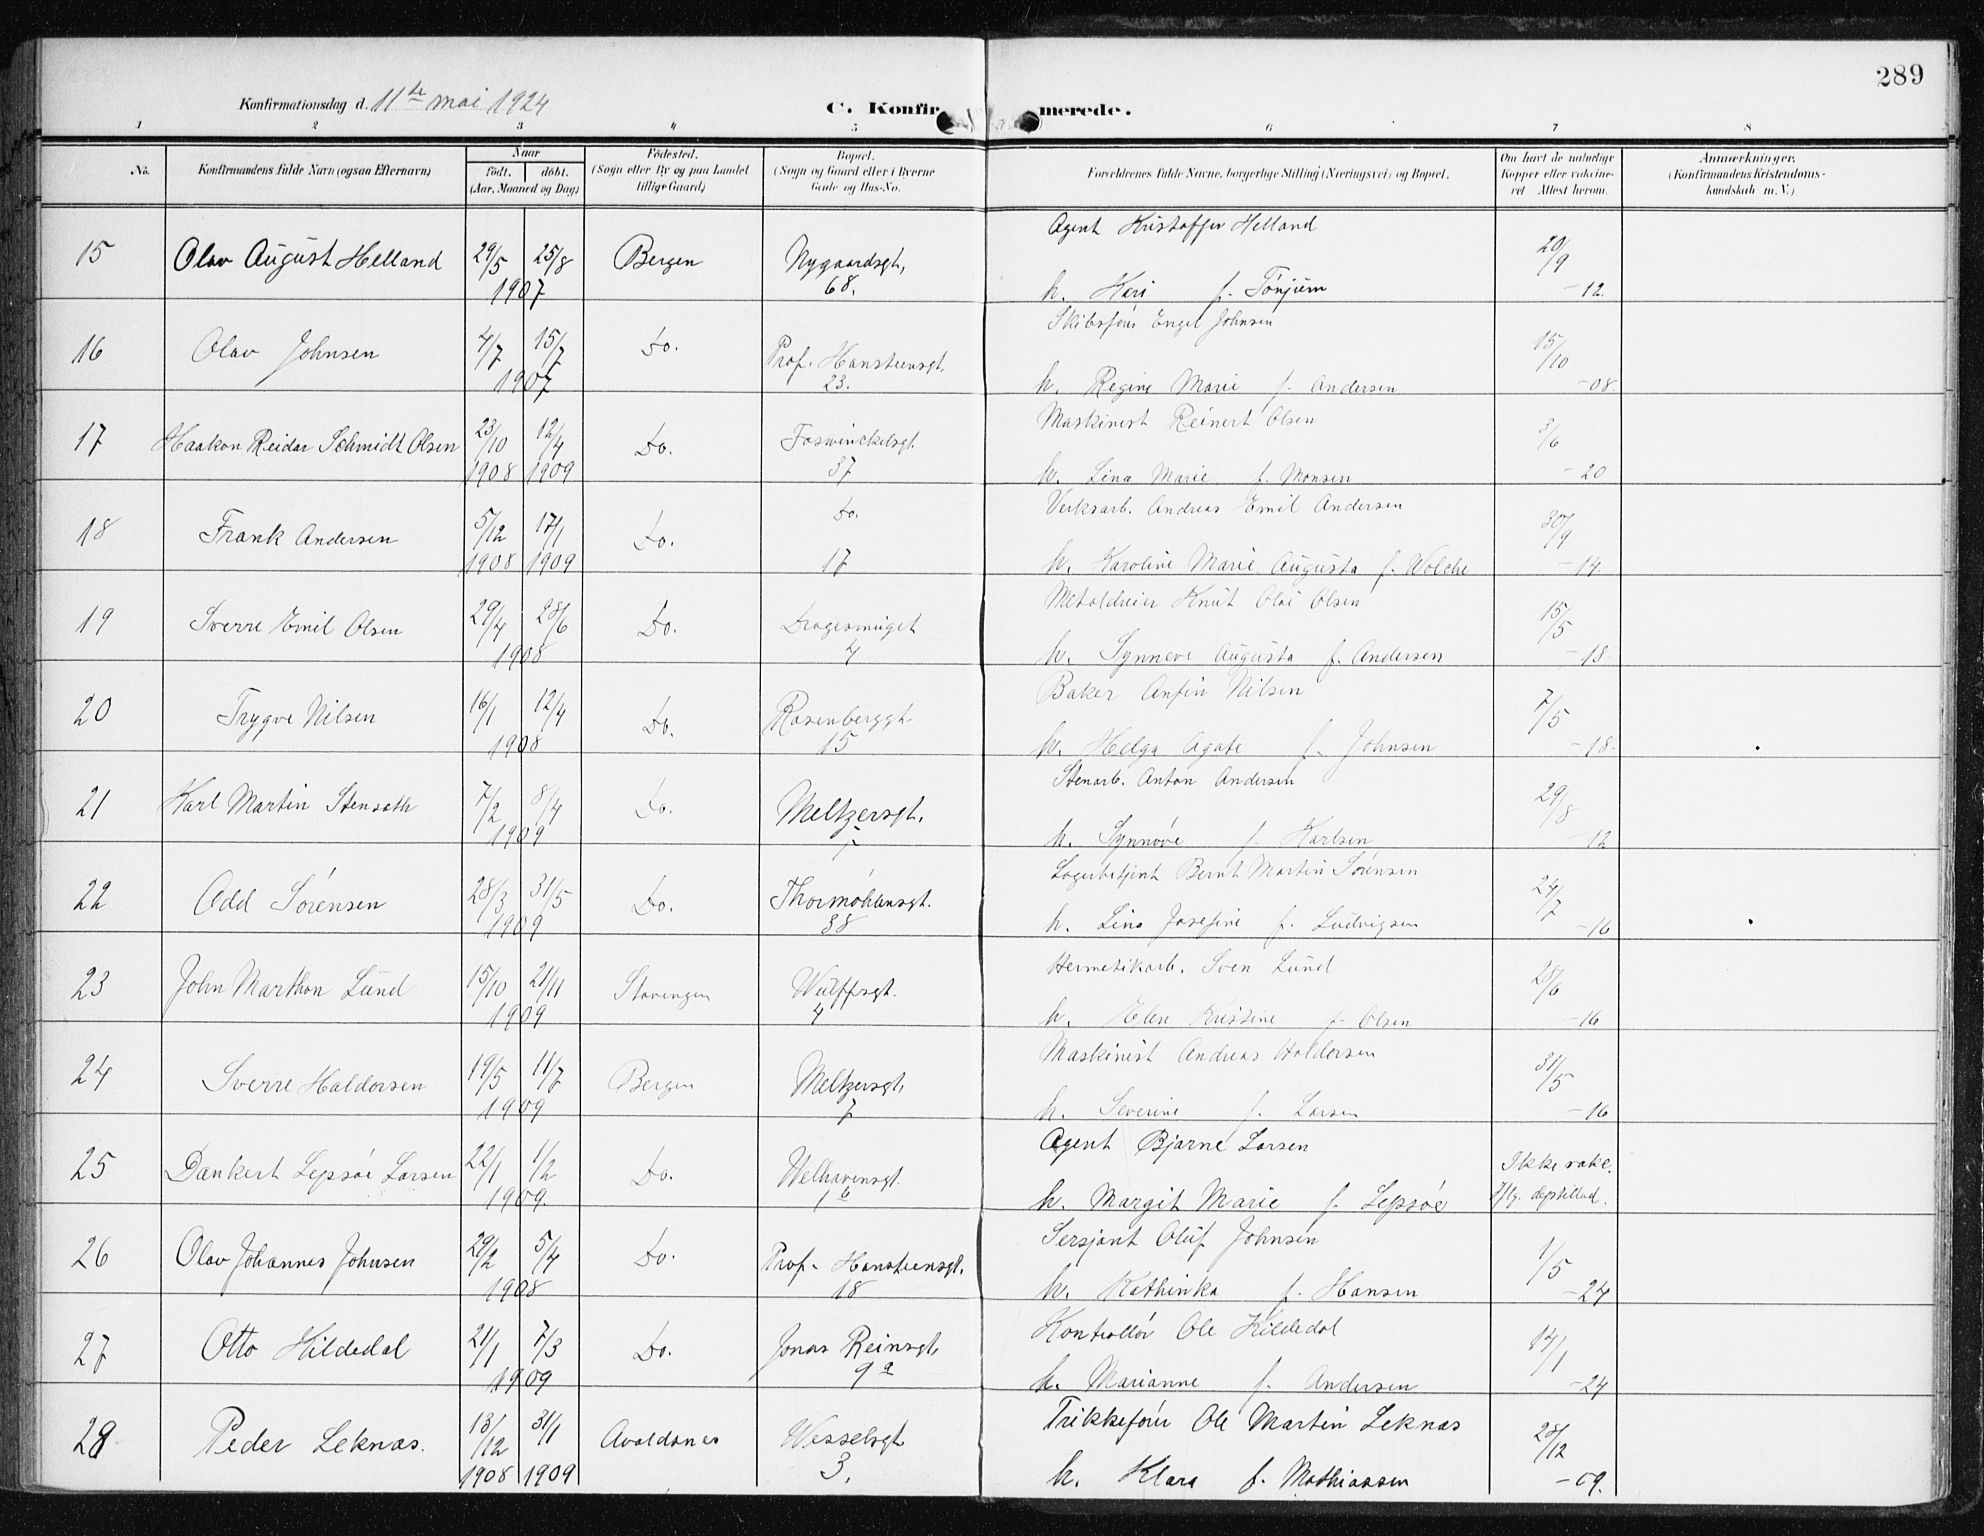 289
Konfirmationsdag d. 11te mai 1924 C. Konfir merede.
1 2 3 4 5 6 7 8
No. Konfirmandens fulde Navn (ogsaa Efternavn) Naar født. døbt. (Aar, Maaned og Dag) Fødested. (Sogn eller By og paa Landet tillige Gaard) Bopæl. (Sogn og Gaard eller i Byerne Gade og Hus-No. Forældrenes fulde Navne, borgerlige Stilling (Næringsvei) og Bopæl. Om havt de naturlige Kopper eller vaccineret Attest herom. Anmærkninger. (Konfirmandens Kristendomskundskab m. V.)
15 Olav August Helland 29/5 25/8 1907 Bergen Nygaardsgt. 68. Agent Kristoffer Helland 20/9
h. Kari f. Tønjum -12.
16 Olav Johnsen 4/7 15/7 1907 Do. Prof. Hansteensgt. 23. Skibsfører Engel Johnsen 15/10
h. Regine Marie f. Andersen -08.
17 Haakon Reidar Schmidt Olsen 23/10 1908 12/4 1909 Do. Foswinckelsgt. 37 Maskinist Reinert Olsen 3/6
h. Lina Marie f. Monsen -20
18 Frank Andersen 5/12 1908 17/1 1909 Do. Do. 17 Verksarb. Andreas Emil Andersen 30/9
h. Karoline Marie Augusta f. Wolche -14.
19 Sverre Emil Olsen 29/4 28/6 1908 Do. Dragesmuget 4 Metaldreier Knut Olai Olsen 15/5
h. Synneve Augusta f. Andersen -18.
20 Trygve Nilsen 16/1 12/4 1908 Do. Rosenberggt. 15 Baker Anfin Nilsen 7/5
h. Helga Agate f. Johnsen -18.
21 Karl Martin Stensæth 7/2 8/4 1909 Do. Meltzersgt. Stenarb. Anton Andersen 29/8
h. Synnøve f. Karlsen -12
22 Odd Sørensen 28/3 31/5 1909 Do. Thormøhlensgt. 38 Lagerbetjent Bernt Martin Sørensen 24/7
h. Lina Josefine f. Ludvigsen -16
23 John Marthon Lund 15/10 21/11 1909 Stavenger Wulffsgt. 4 Hermetikarb. Sven Lund 28/6
h. Elen Kristine f. Olsen -16
24 Sverre Haldorsen 19/5 11/7 1909 Bergen Meltzersgt. 7 Maskinist Andreas Haldorsen 31/5
h. Severine f. Larsen -16
25 Dankert Lepsøe Larsen 22/1 1/2 1909. Do. Welhavensgt. 1b Agent Bjarne Larsen Ikke vakc.
h. Margit Marie f. Lepsøe iflg. deptillad.
26 Olav Johannes Johnsen 29/2 5/4 1908 Do. Prof. Hansteensgt. 18 Sersjant Oluf Johnsen 1/5
h. Kathinka f. Hansen -24
27 Otto Hildedal 21/1 7/3 1909 Do. Jonas Reinsgt. 9a Kontrollør Ole Kildedal 14/1
h. Marianne f. Andersen -24
28 Peder Leknæs. 13/12 1908 31/1 1909 Avaldsnes Wesselsgt. 3. Trikkefører Ole Martin Leknæs 28/12
h. Klara f. Mathiassen -09.